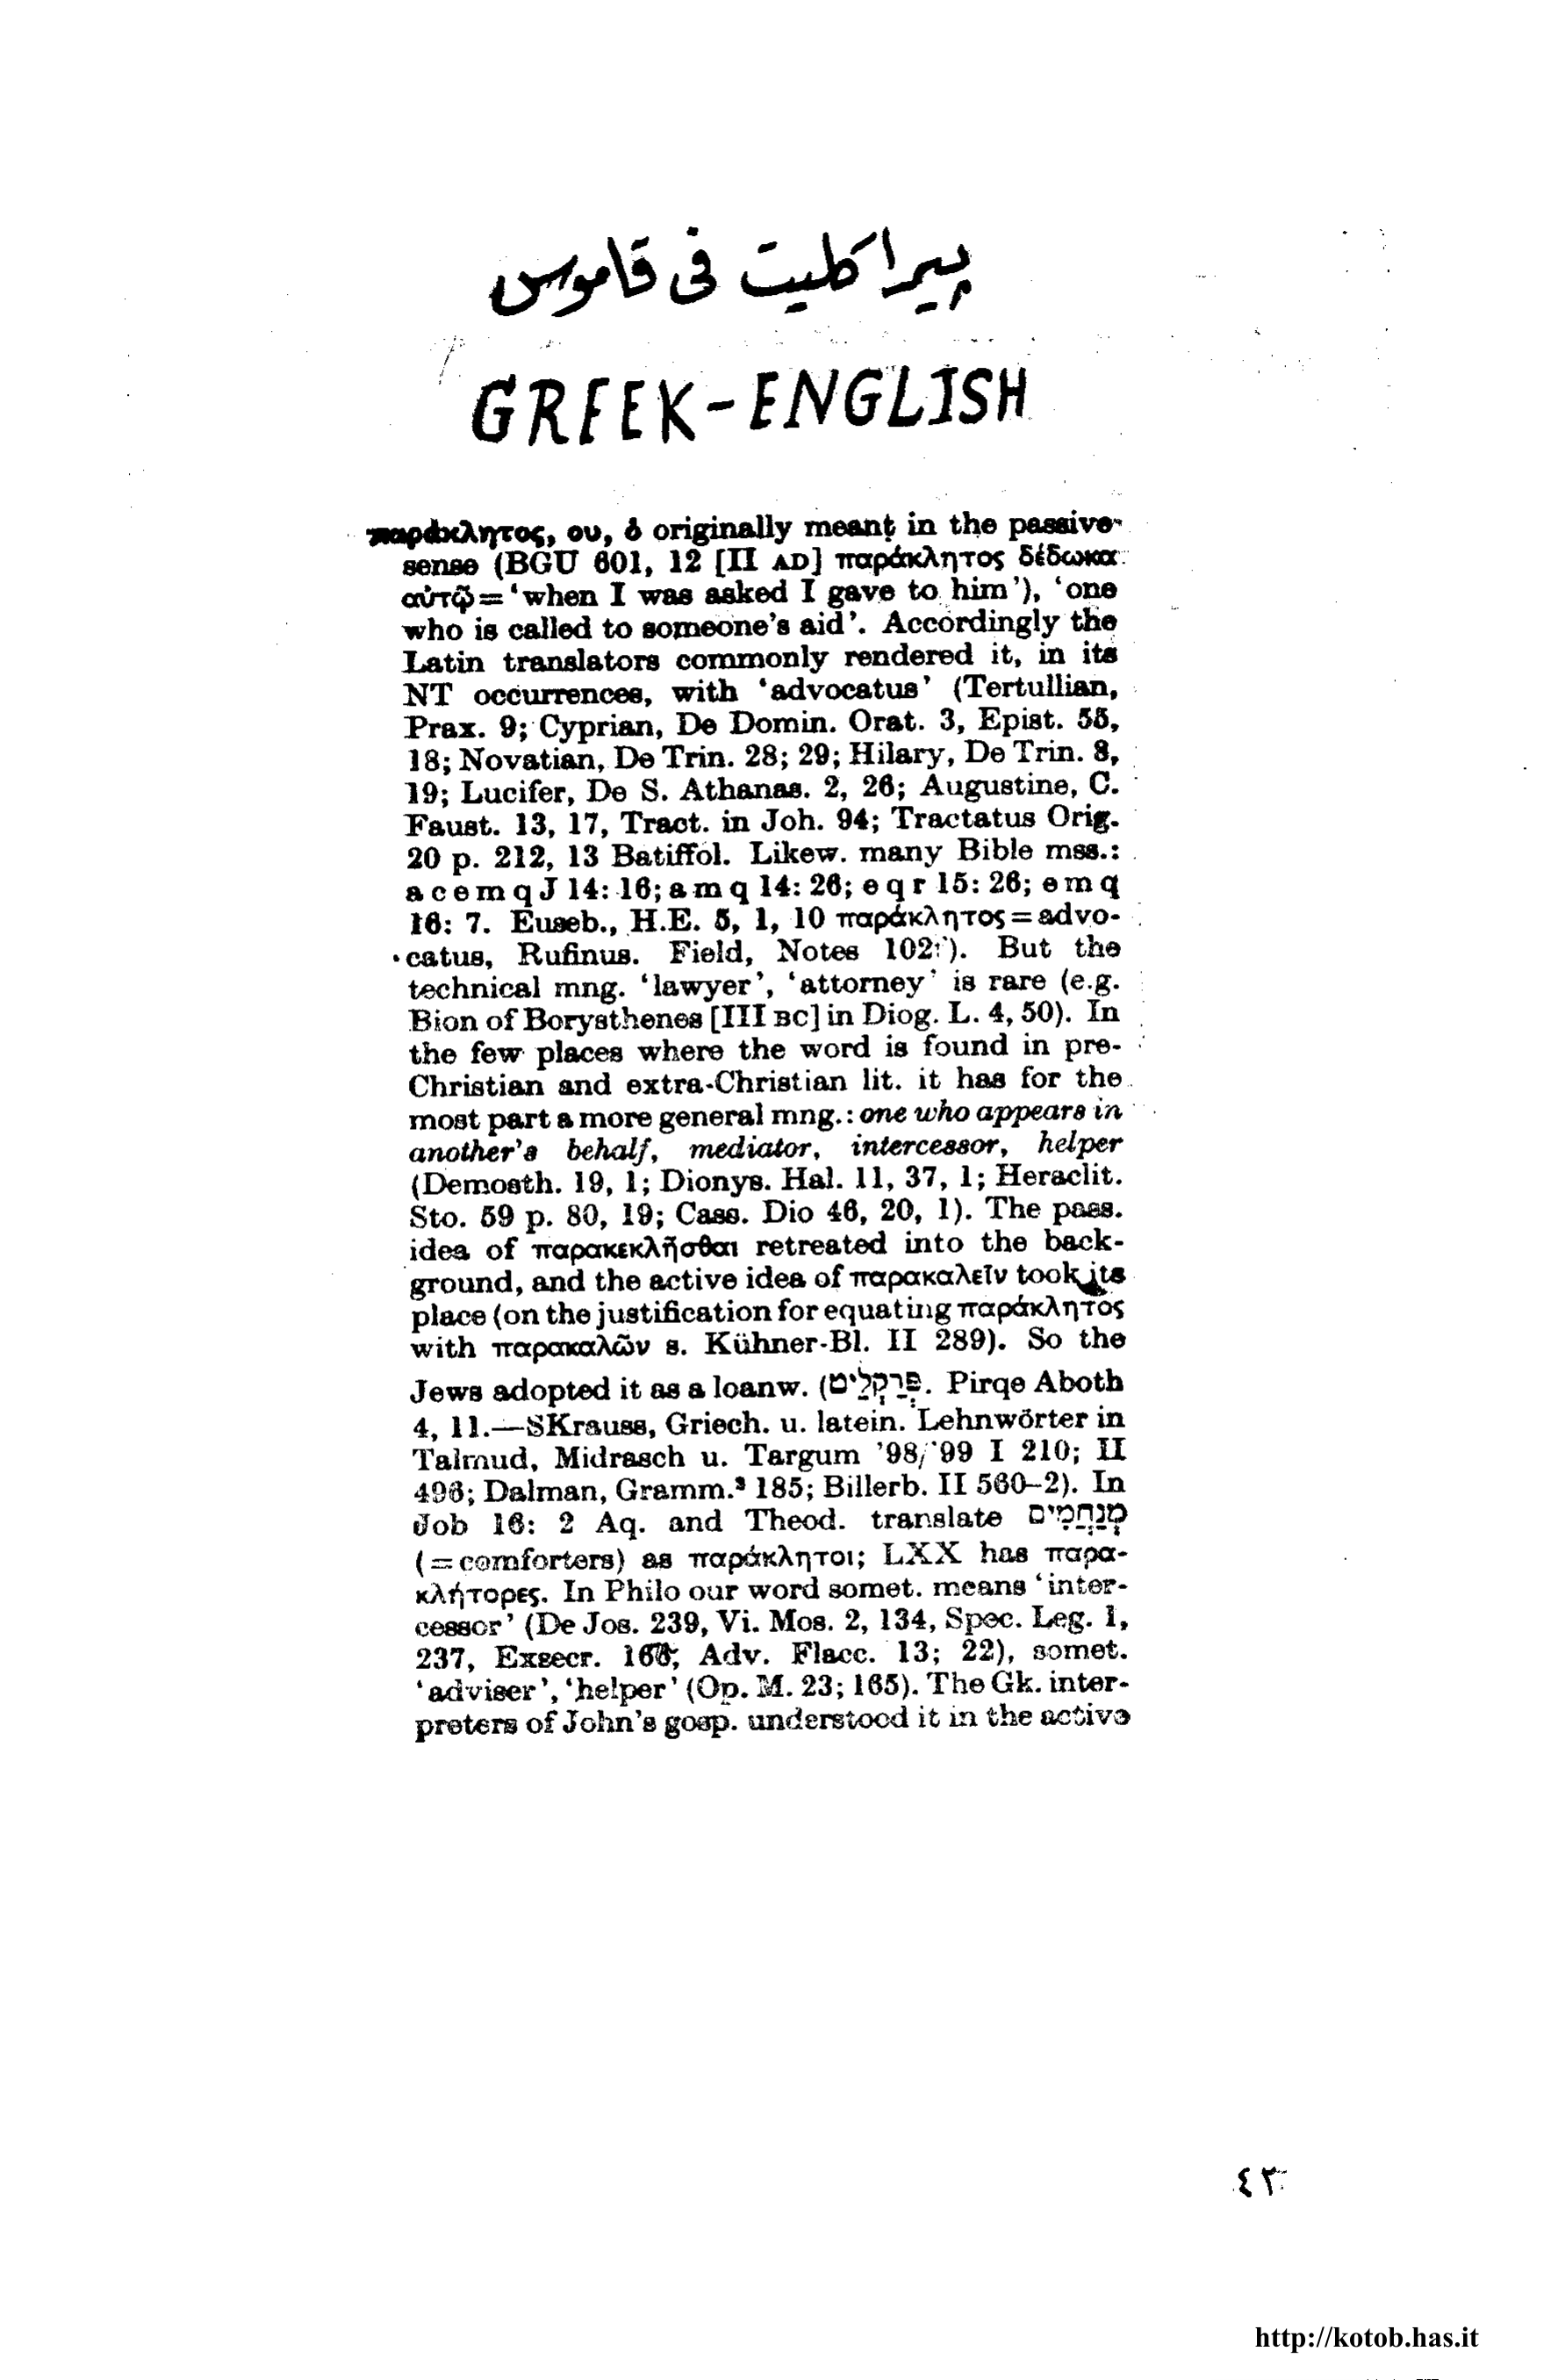 پيراكليت فى قاموس
GREEK-ENGLISH
παράκλητος, ου, ὁ originally meant in the passive
sense (BGU 601, 12 [II AD] παράκλητος δέδωκα
αὐτῷ = ‘when I was asked I gave to him’), ‘one
who is called to someone’s aid’. Accordingly the
Latin translators commonly rendered it, in its
NT occurrences, with ‘advocatus’ (Tertullian,
Prax. 9; Cyprian, De Domin. Orat. 3, Epist. 55,
18; Novatian, De Trin. 28; 29; Hilary, De Trin. 8,
19; Lucifer, De S. Athanas. 2, 26; Augustine, C.
Faust. 13, 17, Tract. in Joh. 94; Tractatus Orig.
20 p. 212, 13 Batiffol. Likew. many Bible mss.:
a c e m q J 14: 16; a m q 14: 26; e q r 15: 26; e m q
16: 7. Euseb., H.E. 5, 1, 10 παράκλητος = advo-
catus, Rufinus. Field, Notes 102f). But the
technical mng. ‘lawyer’, ‘attorney’ is rare (e.g.
Bion of Borysthenes [III BC] in Diog. L. 4, 50). In
the few places where the word is found in pre-
Christian and extra-Christian lit. it has for the
most part a more general mng.: one who appears in
another’s behalf, mediator, intercessor, helper
(Demosth. 19, 1; Dionys. Hal. 11, 37, 1; Heraclit.
Sto. 59 p. 80, 19; Cass. Dio 46, 20, 1). The pass.
idea of παρακεκλῆσθαι retreated into the back-
ground, and the active idea of παρακαλεῖν took its
place (on the justification for equating παράκλητος
with παρακαλῶν s. Kühner-Bl. II 289). So the
Jews adopted it as a loanw. (פְּרַקְלֵיט. Pirqe Aboth
4, 11.—SKrauss, Griech. u. latein. Lehnwörter in
Talmud, Midrasch u. Targum ’98/’99 I 210; II
496; Dalman, Gramm.² 185; Billerb. II 560–2). In
Job 16: 2 Aq. and Theod. translate מְנַחֲמִים
(= comforters) as παράκλητοι; LXX has παρα-
κλήτορες. In Philo our word somet. means ‘inter-
cessor’ (De Jos. 239, Vi. Mos. 2, 134, Spec. Leg. 1,
237, Exsecr. Adv. Flacc. 13; 22), somet.
‘adviser’, ‘helper’ (Op. M. 23; 165). The Gk. inter-
preters of John’s gosp. understood it in the active
٤٣
http://kotob.has.it